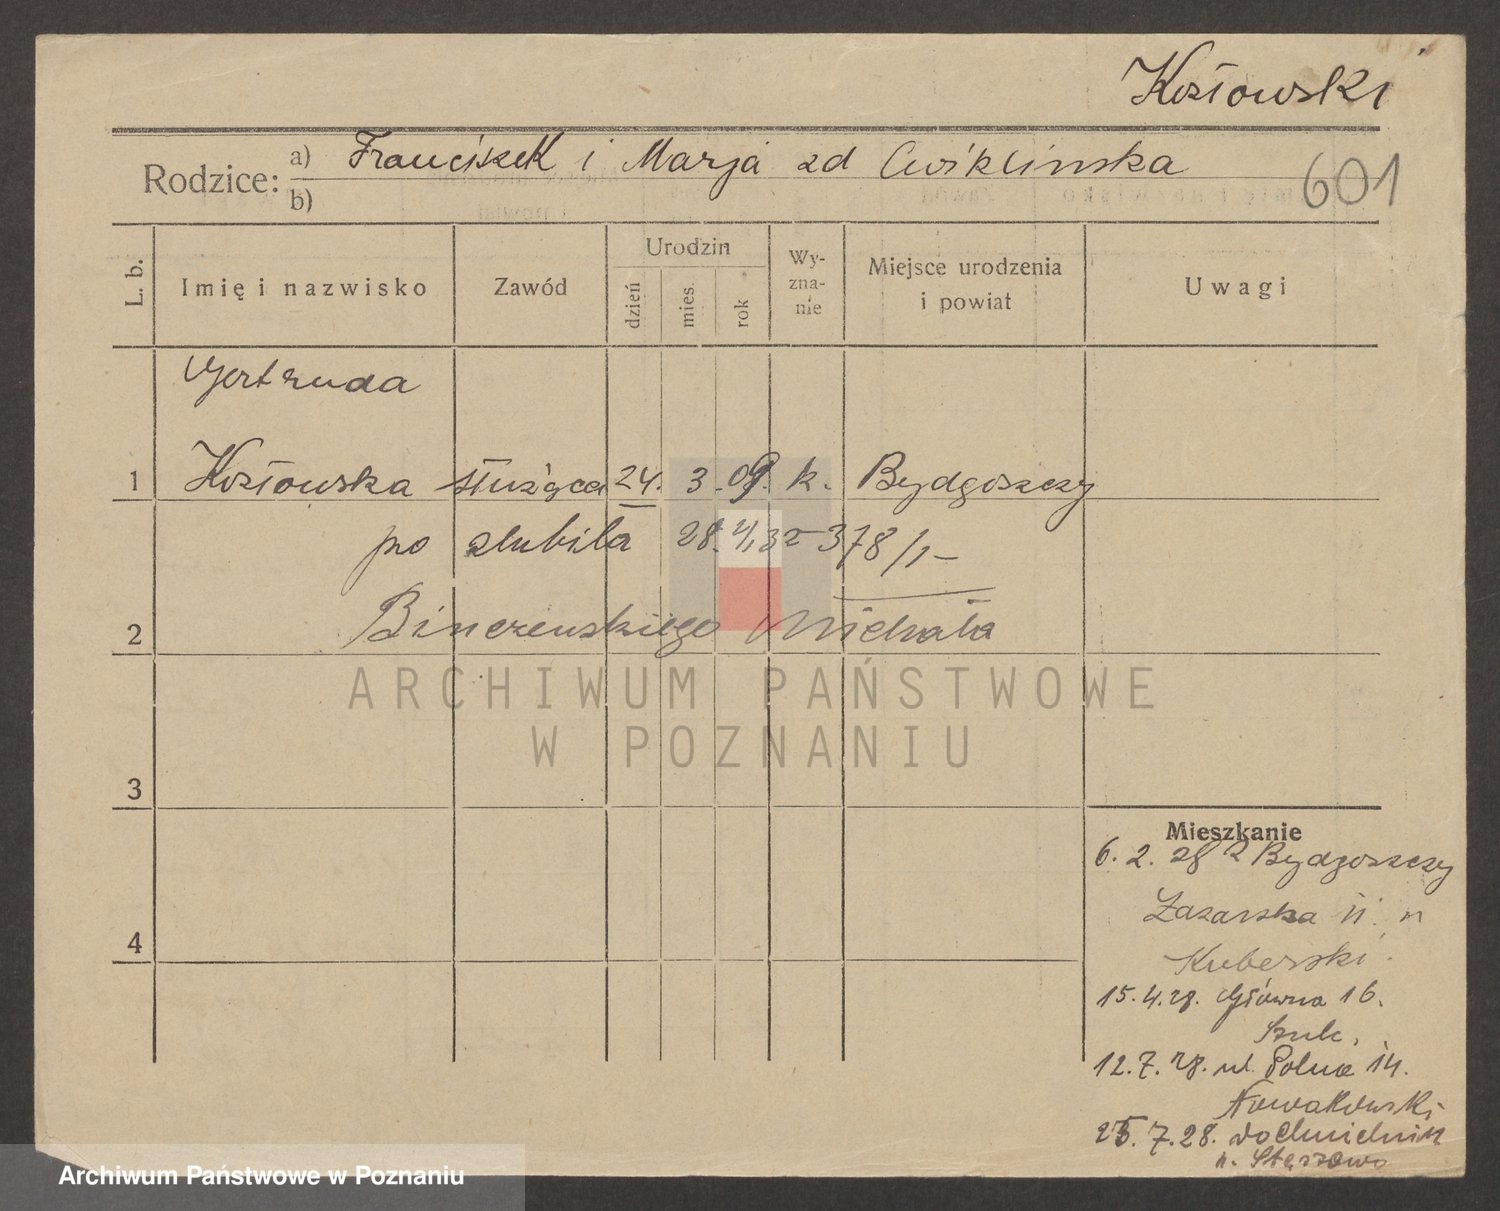 Kozłowski
Rodzice:
a) Franciszek i Marja zd Cwiklinska
b)
601
L. b.
Imię i nazwisko
Zawód
Urodzin
dzień
mies.
rok
Wy-
zna-
nie
Miejsce urodzenia
i powiat
Uwagi
Gertruda
1 Kozłowska służąca 24. 3. 09. k. Bydgoszczy
po slubiła 28. 4. 32 378/1-
2 Binczenskiego Michała
3
4
ARCHIWUM PAŃSTWOWE
W POZNANIU
Mieszkanie
6. 2. 28 z Bydgoszczy
Łazarska 11. n
Kuberski.
15. 4. 28. Główna 16.
Szulc,
12. 7. 28. ul. Polna 14.
Nowakowski
25. 7. 28. do Chmielnik
n.
Archiwum Państwowe w Poznaniu